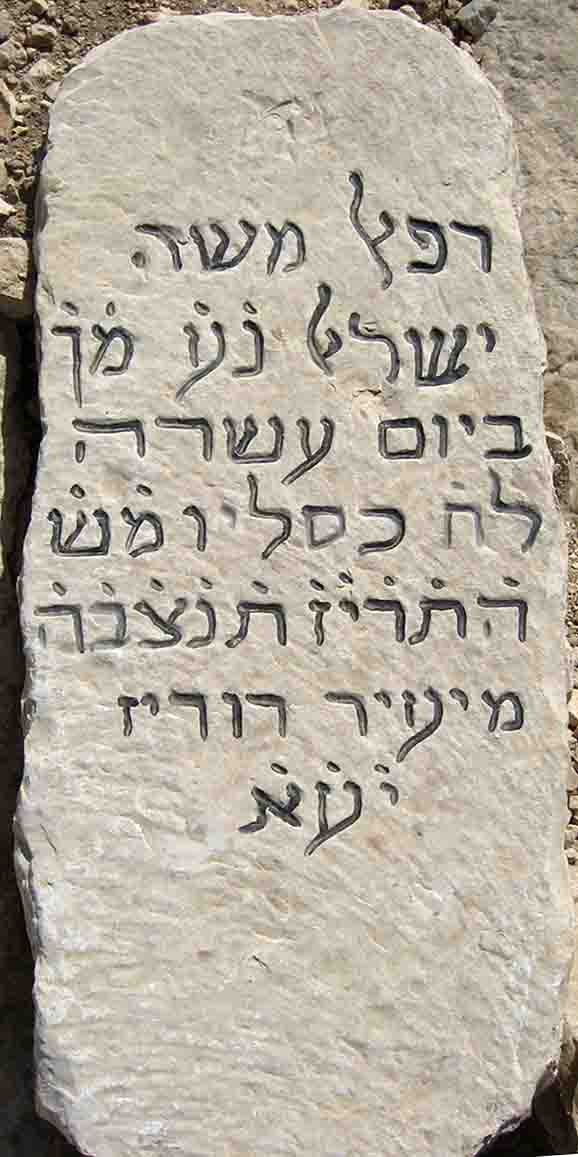 רפﭏ משה
ישרﭏ נׄעׄ מׄךׄ
ביום עשרה
לחׄ כסליו מׄשׄ
הׄתׄרׄיׄזׄ תׄנׄצׄבׄהׄ
מיעיר רודיז
יׄעׄאׄ